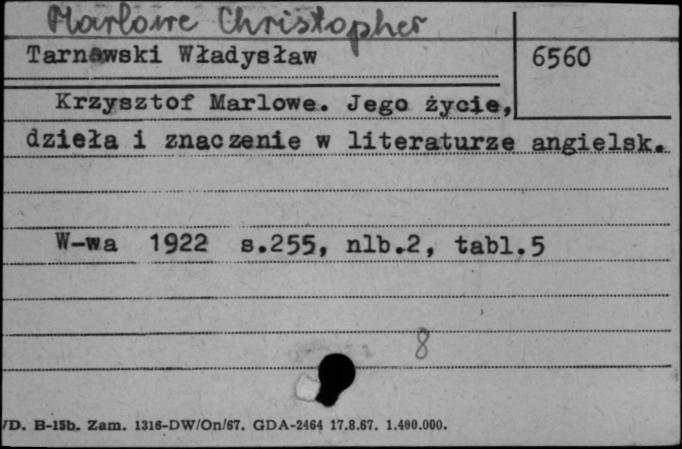 Marlowe Christopher
Tarnawski Władysław
6560
Krzysztof Marlowe. Jego życie,
dzieła i znaczenie w literaturze angielsk.
W-wa 1922 s.255, nlb.2, tabl.5
8
D. B-15b. Zam. 1316-DW/On/67. GDA-2464 17.8.67. 1.400.000.